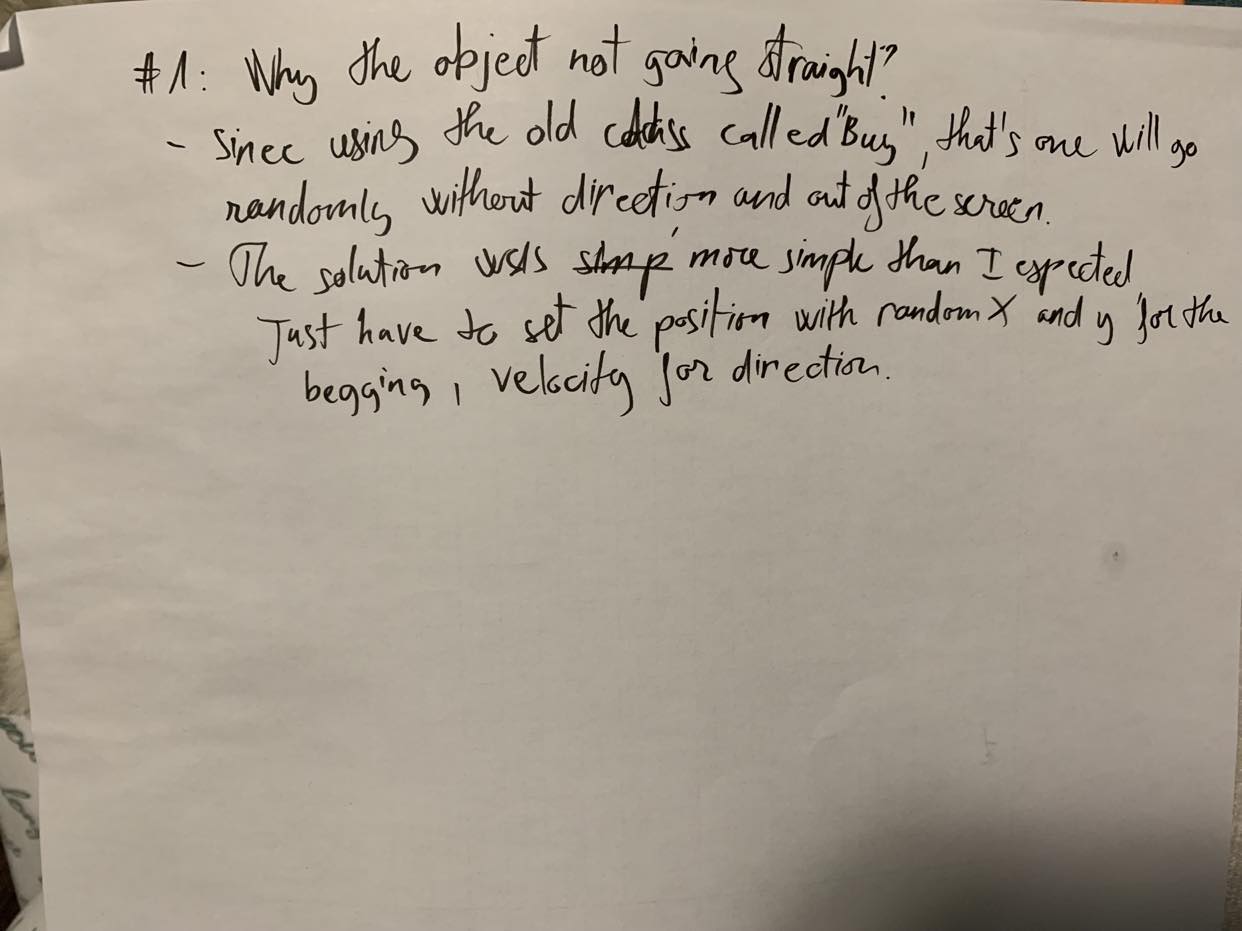 #1: Why the object not going straight?
- Since using the old class called "Bug", that's one will go
randomly without direction and out of the screen.
- The solution was simp more simple than I expected
Just have to set the position with random X and y for the
begging, velocity for direction.